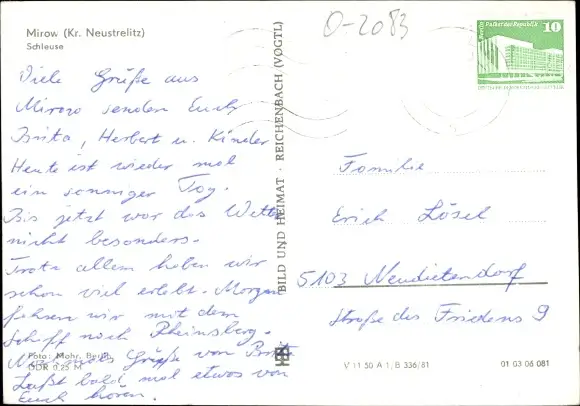 Mirow (Kr. Neustrelitz)
Schleuse
Viele Grüße aus
Mirow senden Euch
Brita, Herbert u. Kinder
Heute ist wieder mal
ein sonniger Tag.
Bis jetzt war das Wetter
nicht besonders.
Trotz allem haben wir
schon viel erlebt. Morgen
fahren wir mit dem
Schiff nach Rheinsberg.
Nochmals Grüße von Brita
Laßt bald mal etwas von
Euch hören.
Foto: Mohr, Berlin
DDR 0,25 M
BILD UND HEIMAT · REICHENBACH (VOGTL)
O-2083
Berlin, Palast der Republik
10
Familie
Erich Lösel
5103 Neudietendorf
Straße des Friedens 9
V 11 50 A 1, B 336/81
01 03 06 081